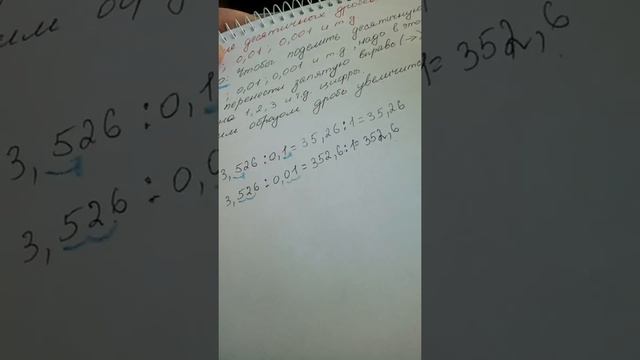 десятичных дробей
; 0,01; 0,001 и т.д.
: Чтобы поделить десятичную
; 0,01; 0,001 и т.д., надо в это
перенести запятую вправо (→)
на 1, 2, 3 и т.д. цифры.
образом дробь увеличится
3,526 : 0,1 = 35,26 : 1 = 35,26
3,526 : 0,01 = 352,6 : 1 = 352,6